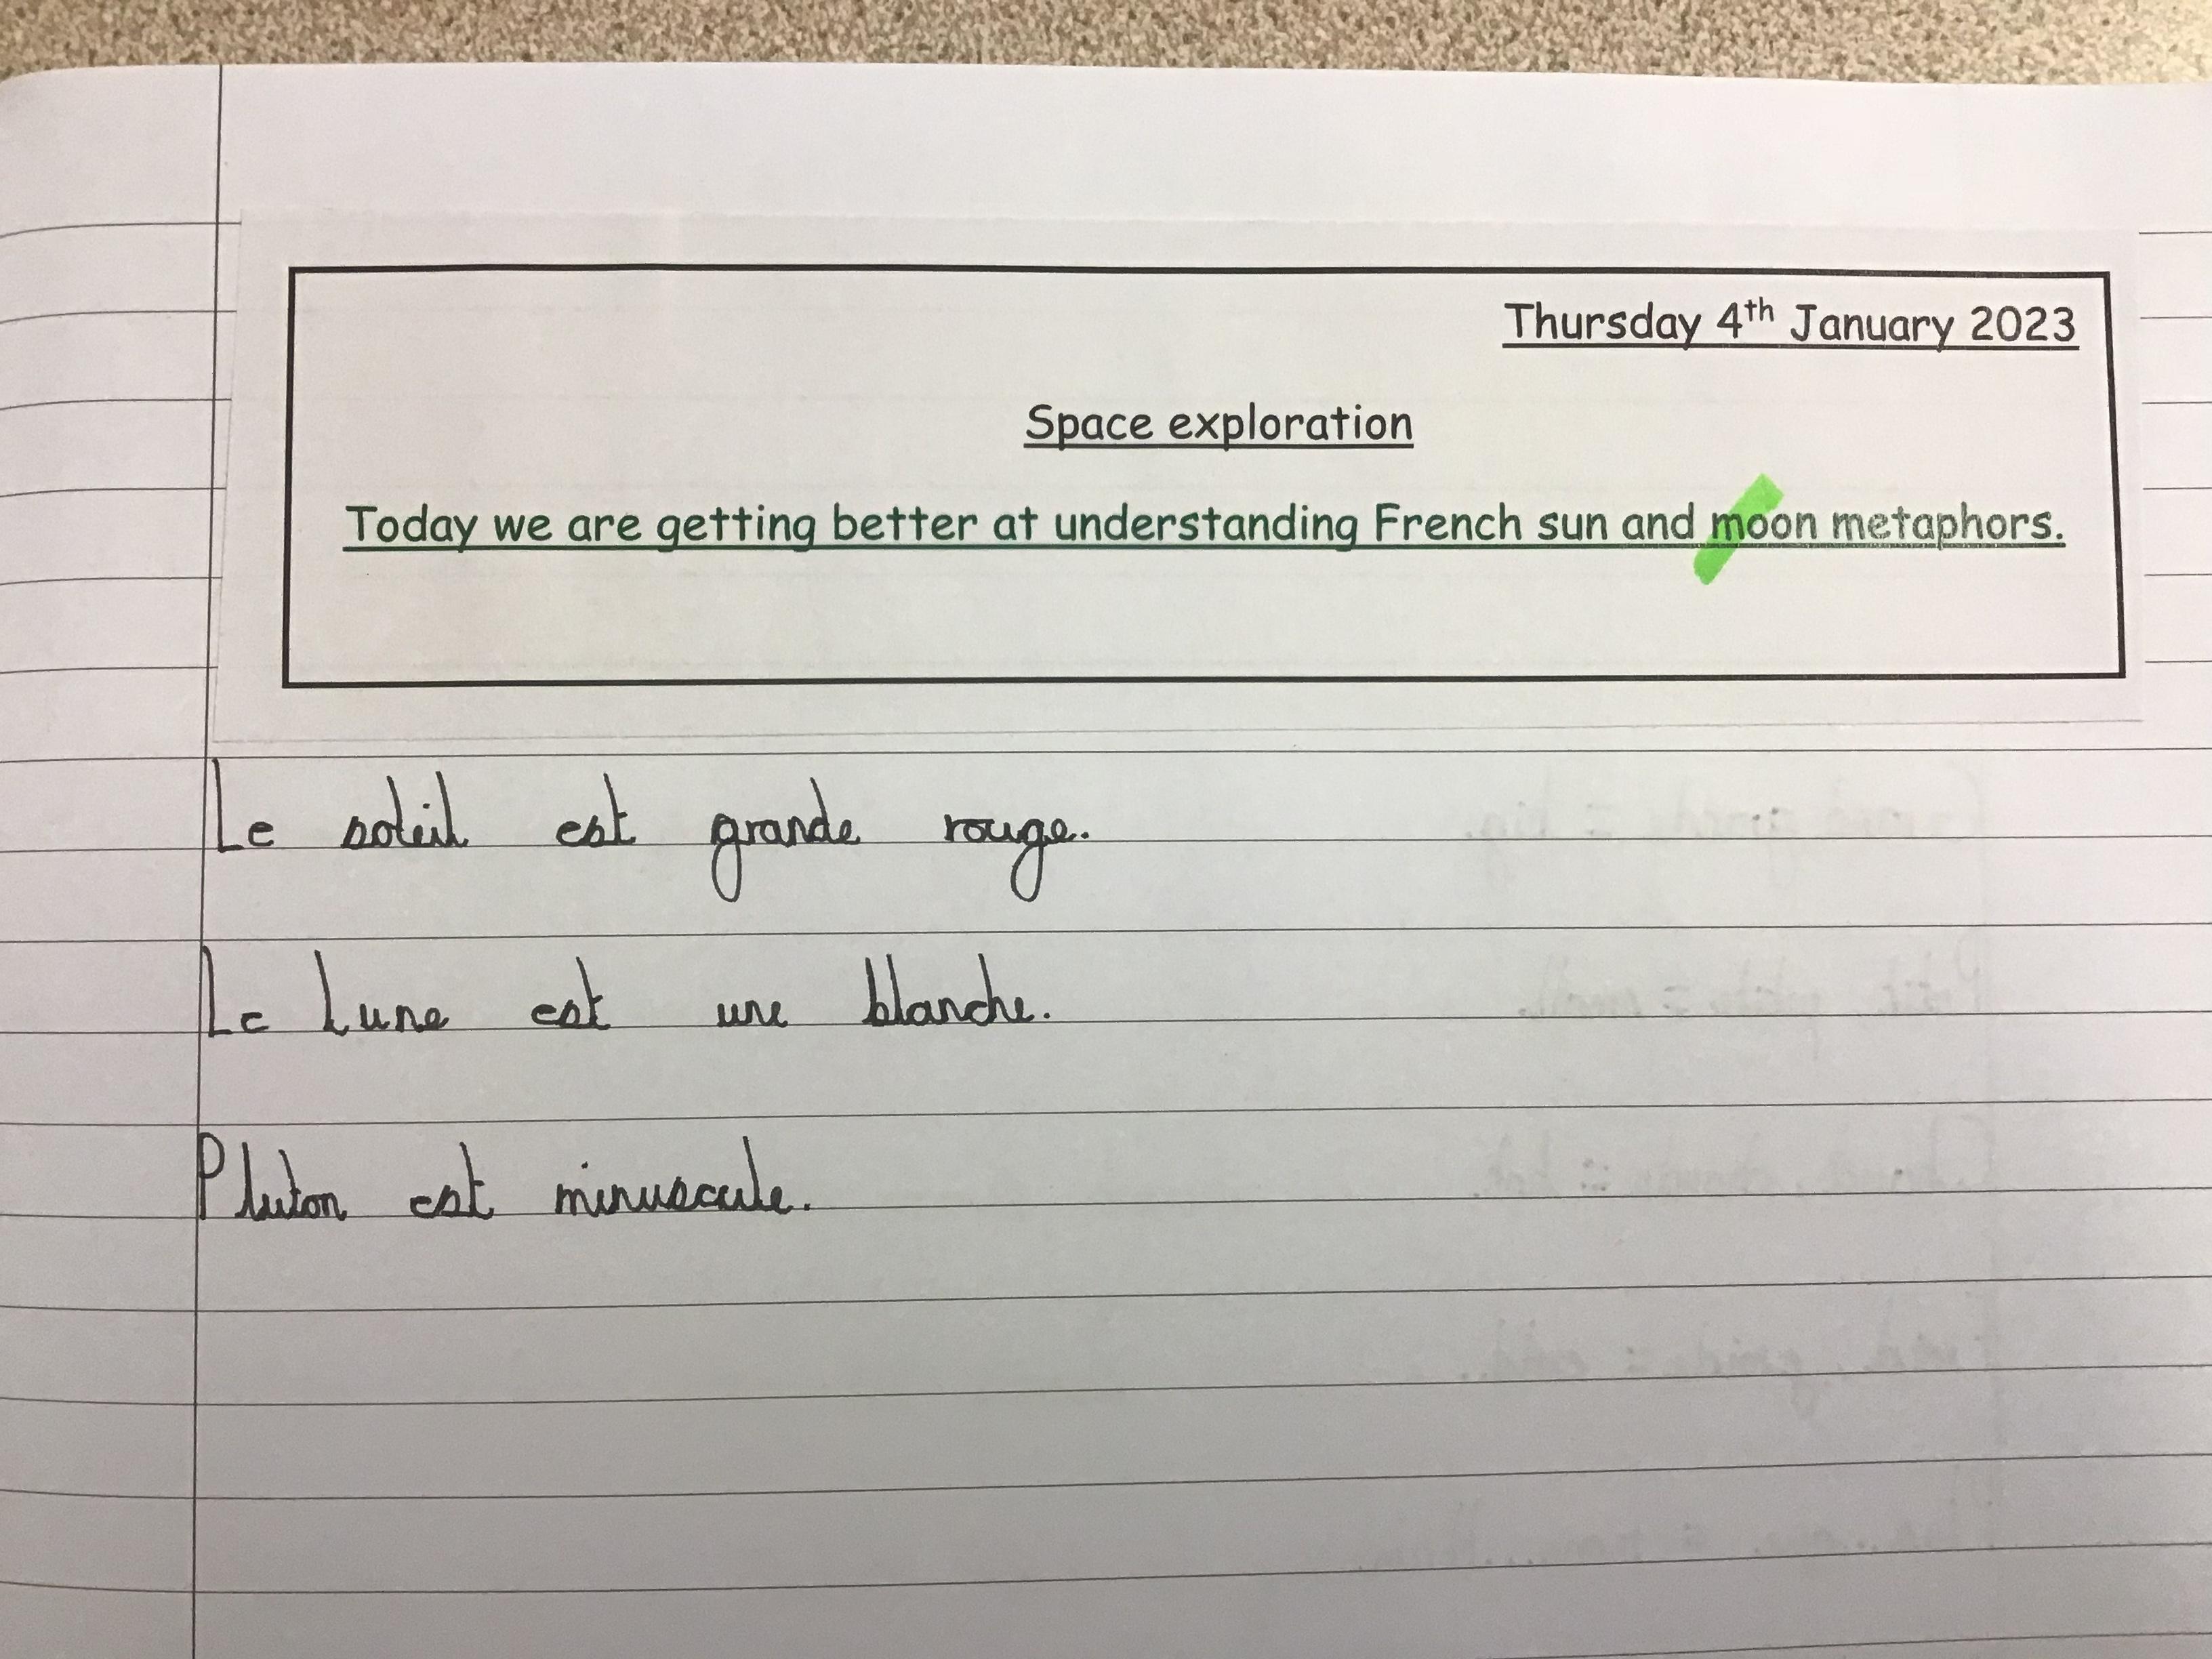 Thursday 4th January 2023
Space exploration
Today we are getting better at understanding French sun and moon metaphors.
Le soleil est grande rouge.
Le Lune est une blanche.
Pluton est minuscule.